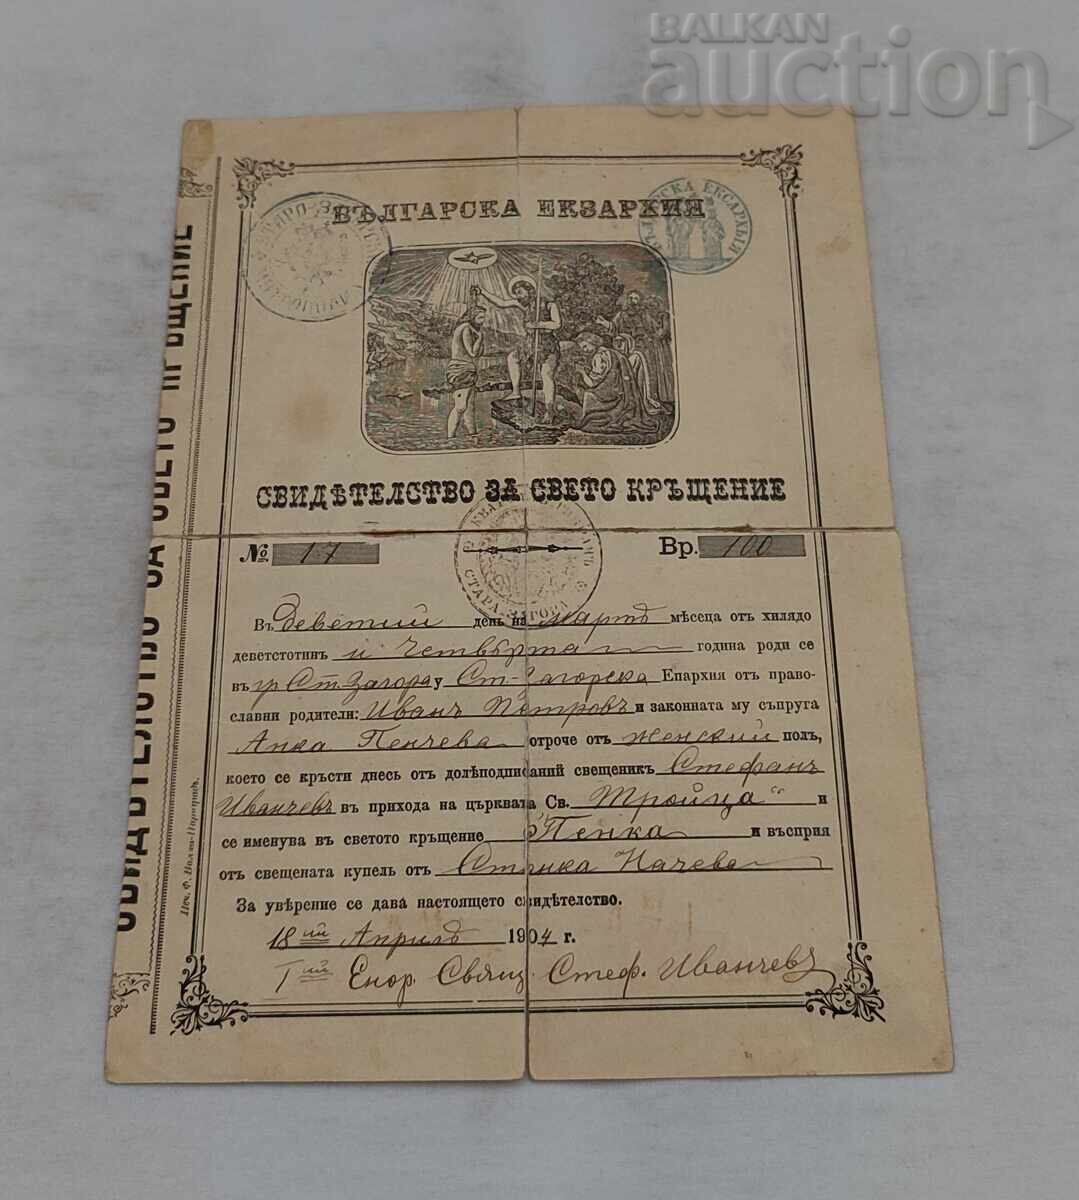 BALKAN
auction
БЪЛГАРСКА ЕКЗАРХИЯ
СВИДѢТЕЛСТВО ЗА СВЕТО КРЪЩЕНИЕ
СВИДѢТЕЛСТВО ЗА СВЕТО КРЪЩЕНИЕ
СТАРА-ЗАГОРА
№ 17 Вр. 100
Въ деветий день на Мартъ мѣсеца отъ хилядо
деветстотинъ и четвърта година роди се
въ гр Ст. Загора у Ст-Загорска Епархия отъ право-
славни родители: Иванъ Петровъ и законната му съпруга
Анка Пенчева отроче отъ женский полъ,
което се кръсти днесь отъ долѣподписаний свещеникъ Стефанъ
Иванчевъ въ прихода на църквата Св. Тройца" и
се именува въ светото кръщение Пенка и въсприя
отъ свещената купель отъ Начева
За увѣрение се дава настоящето свидѣтелство.
18ий Априлъ 1904 г.
Iий Енор. Свящ. Стеф. Иванчевъ